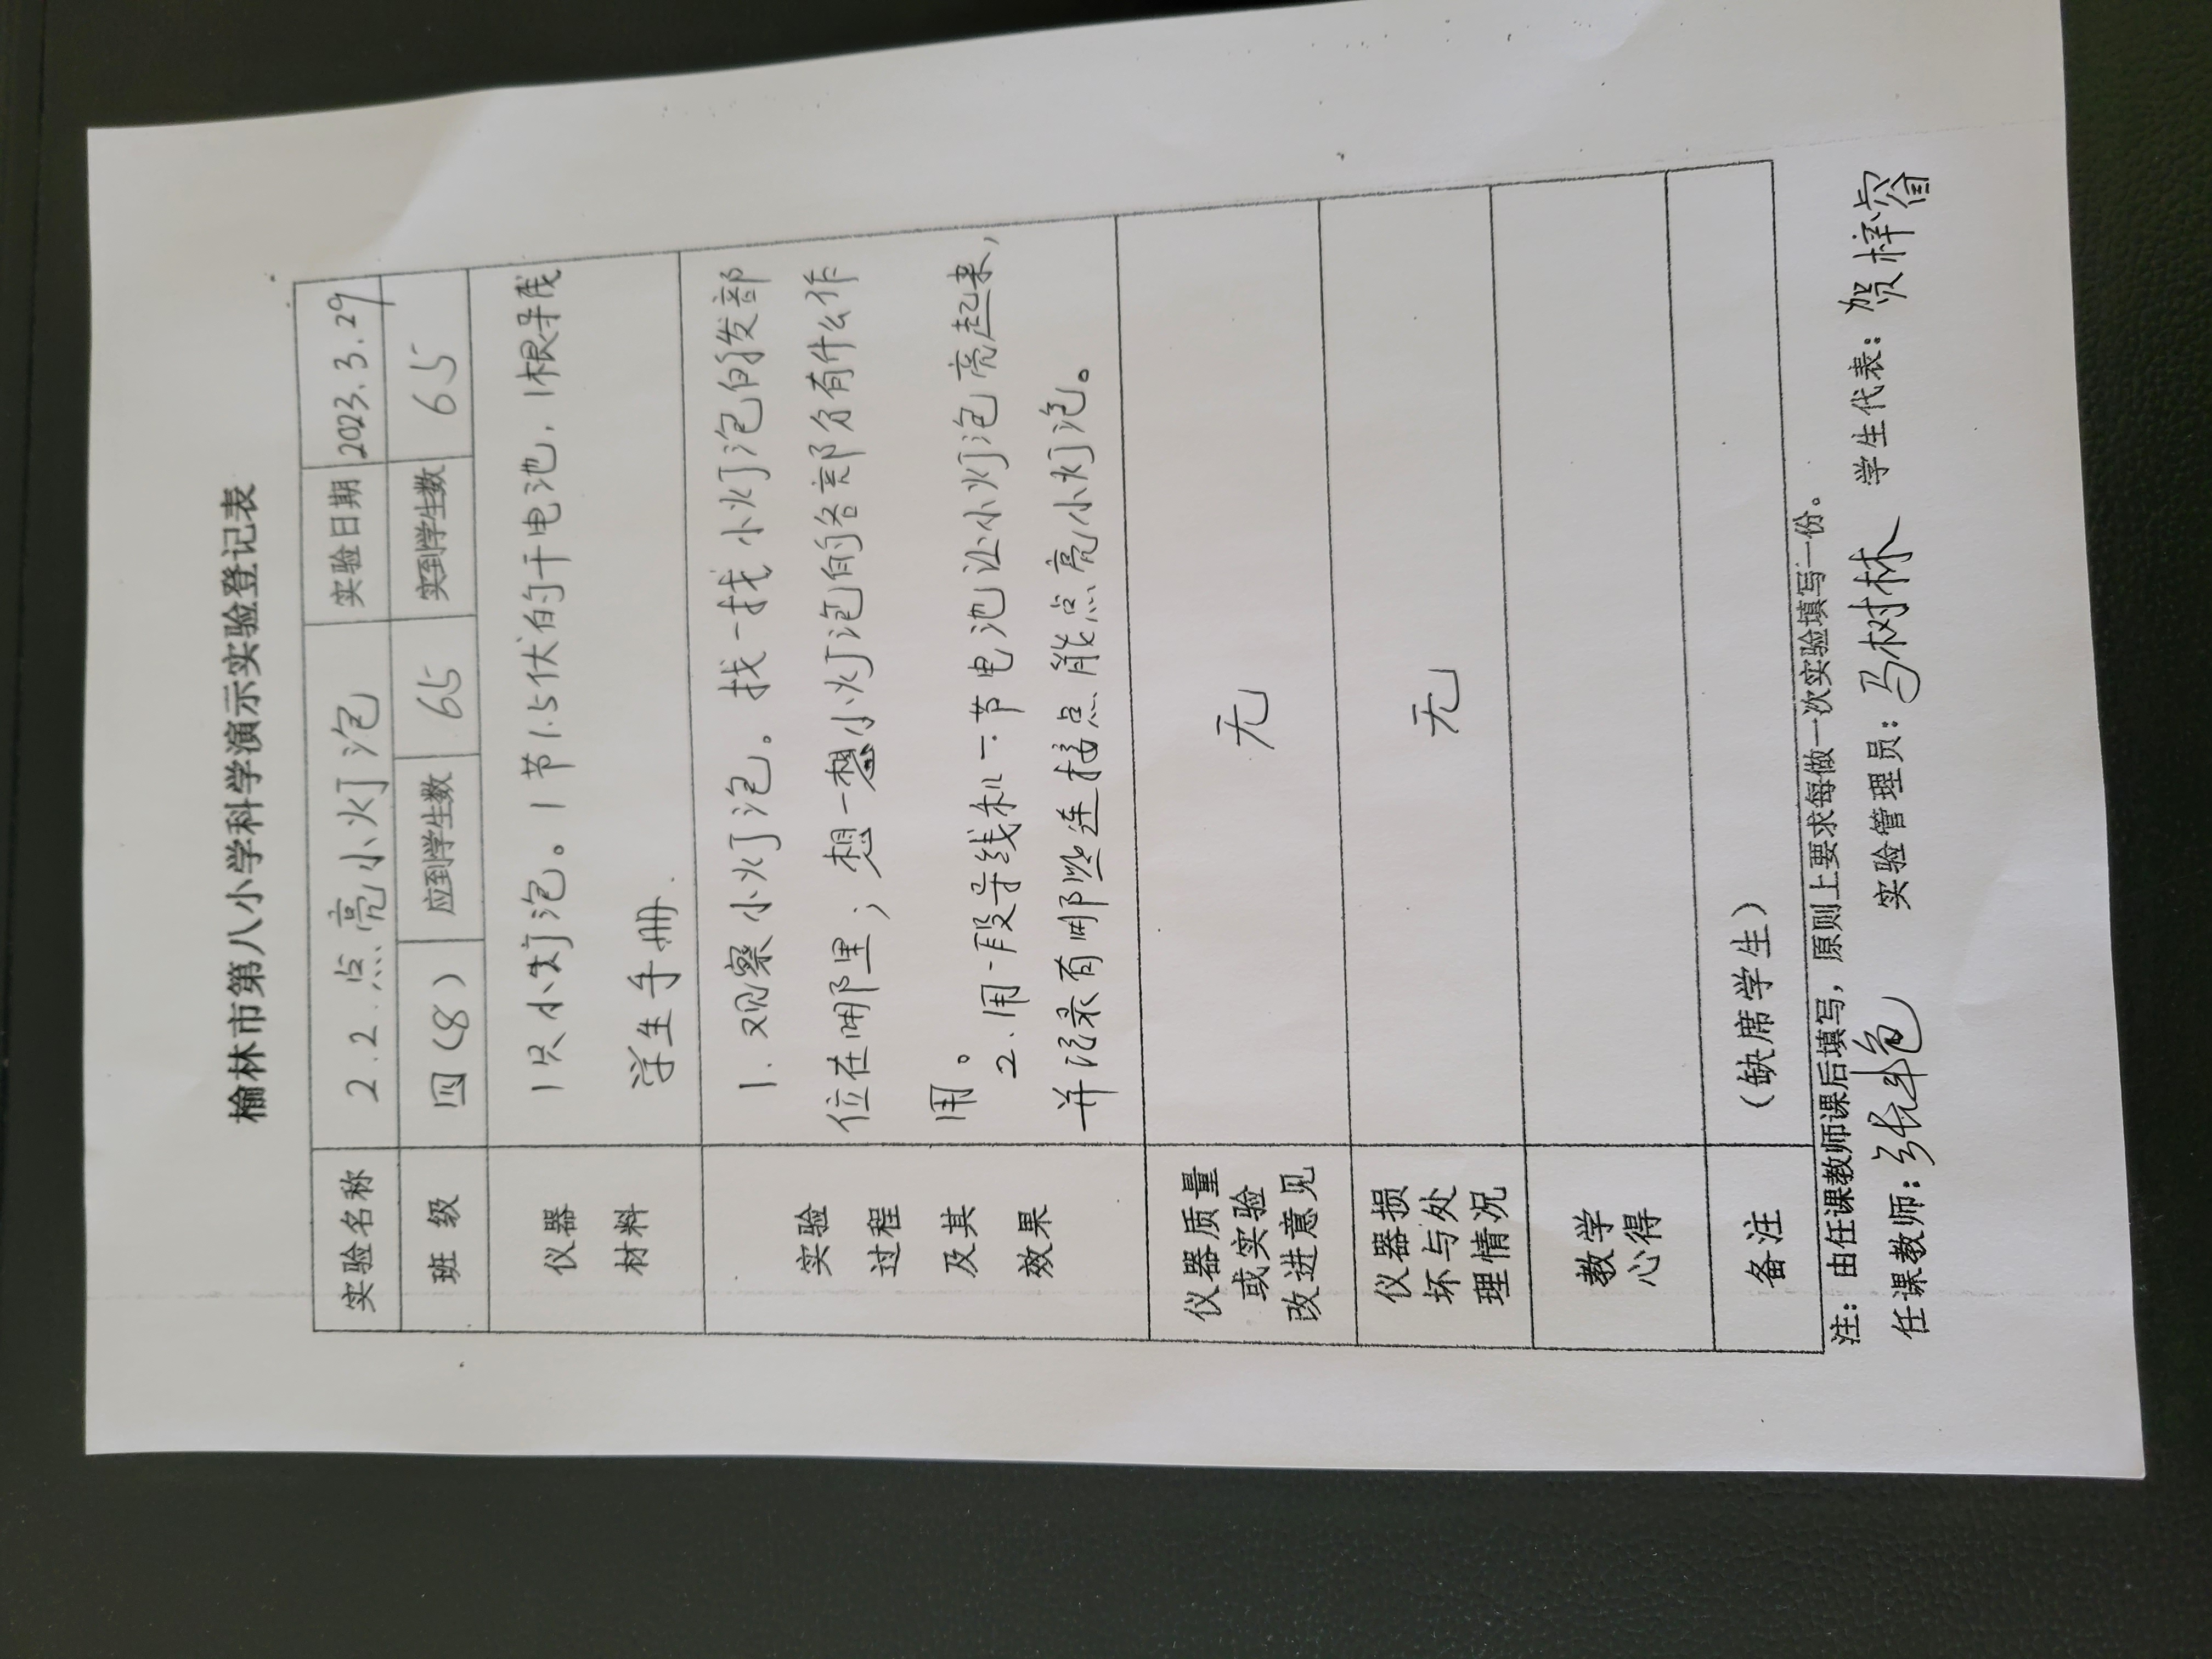 榆林市第八小学科学演示实验登记表
实验名称 2.2.点亮小灯泡 实验日期 2023.3.29
班 级 四(8) 应到学生数 65 实到学生数 65
仪器 1只小灯泡。1节1.5伏的干电池.1根导线
材料 学生手册.
实验 1.观察小灯泡。找一找小灯泡的发部
过程 位在哪里;想一想小灯泡的各部分有什么作
及其 用。2.用一段导线和一节电池让小灯泡亮起来,
效果 并记录有哪些连接点能点亮小灯泡。
仪器质量
或实验 无
改进意见
仪器损
坏与处 无
理情况
教学
心得
备注 (缺席学生)
注:由任课教师课后填写,原则上要求每做一次实验填写一份。
任课教师:张艳 实验管理员:马树林 学生代表:贺梓睿